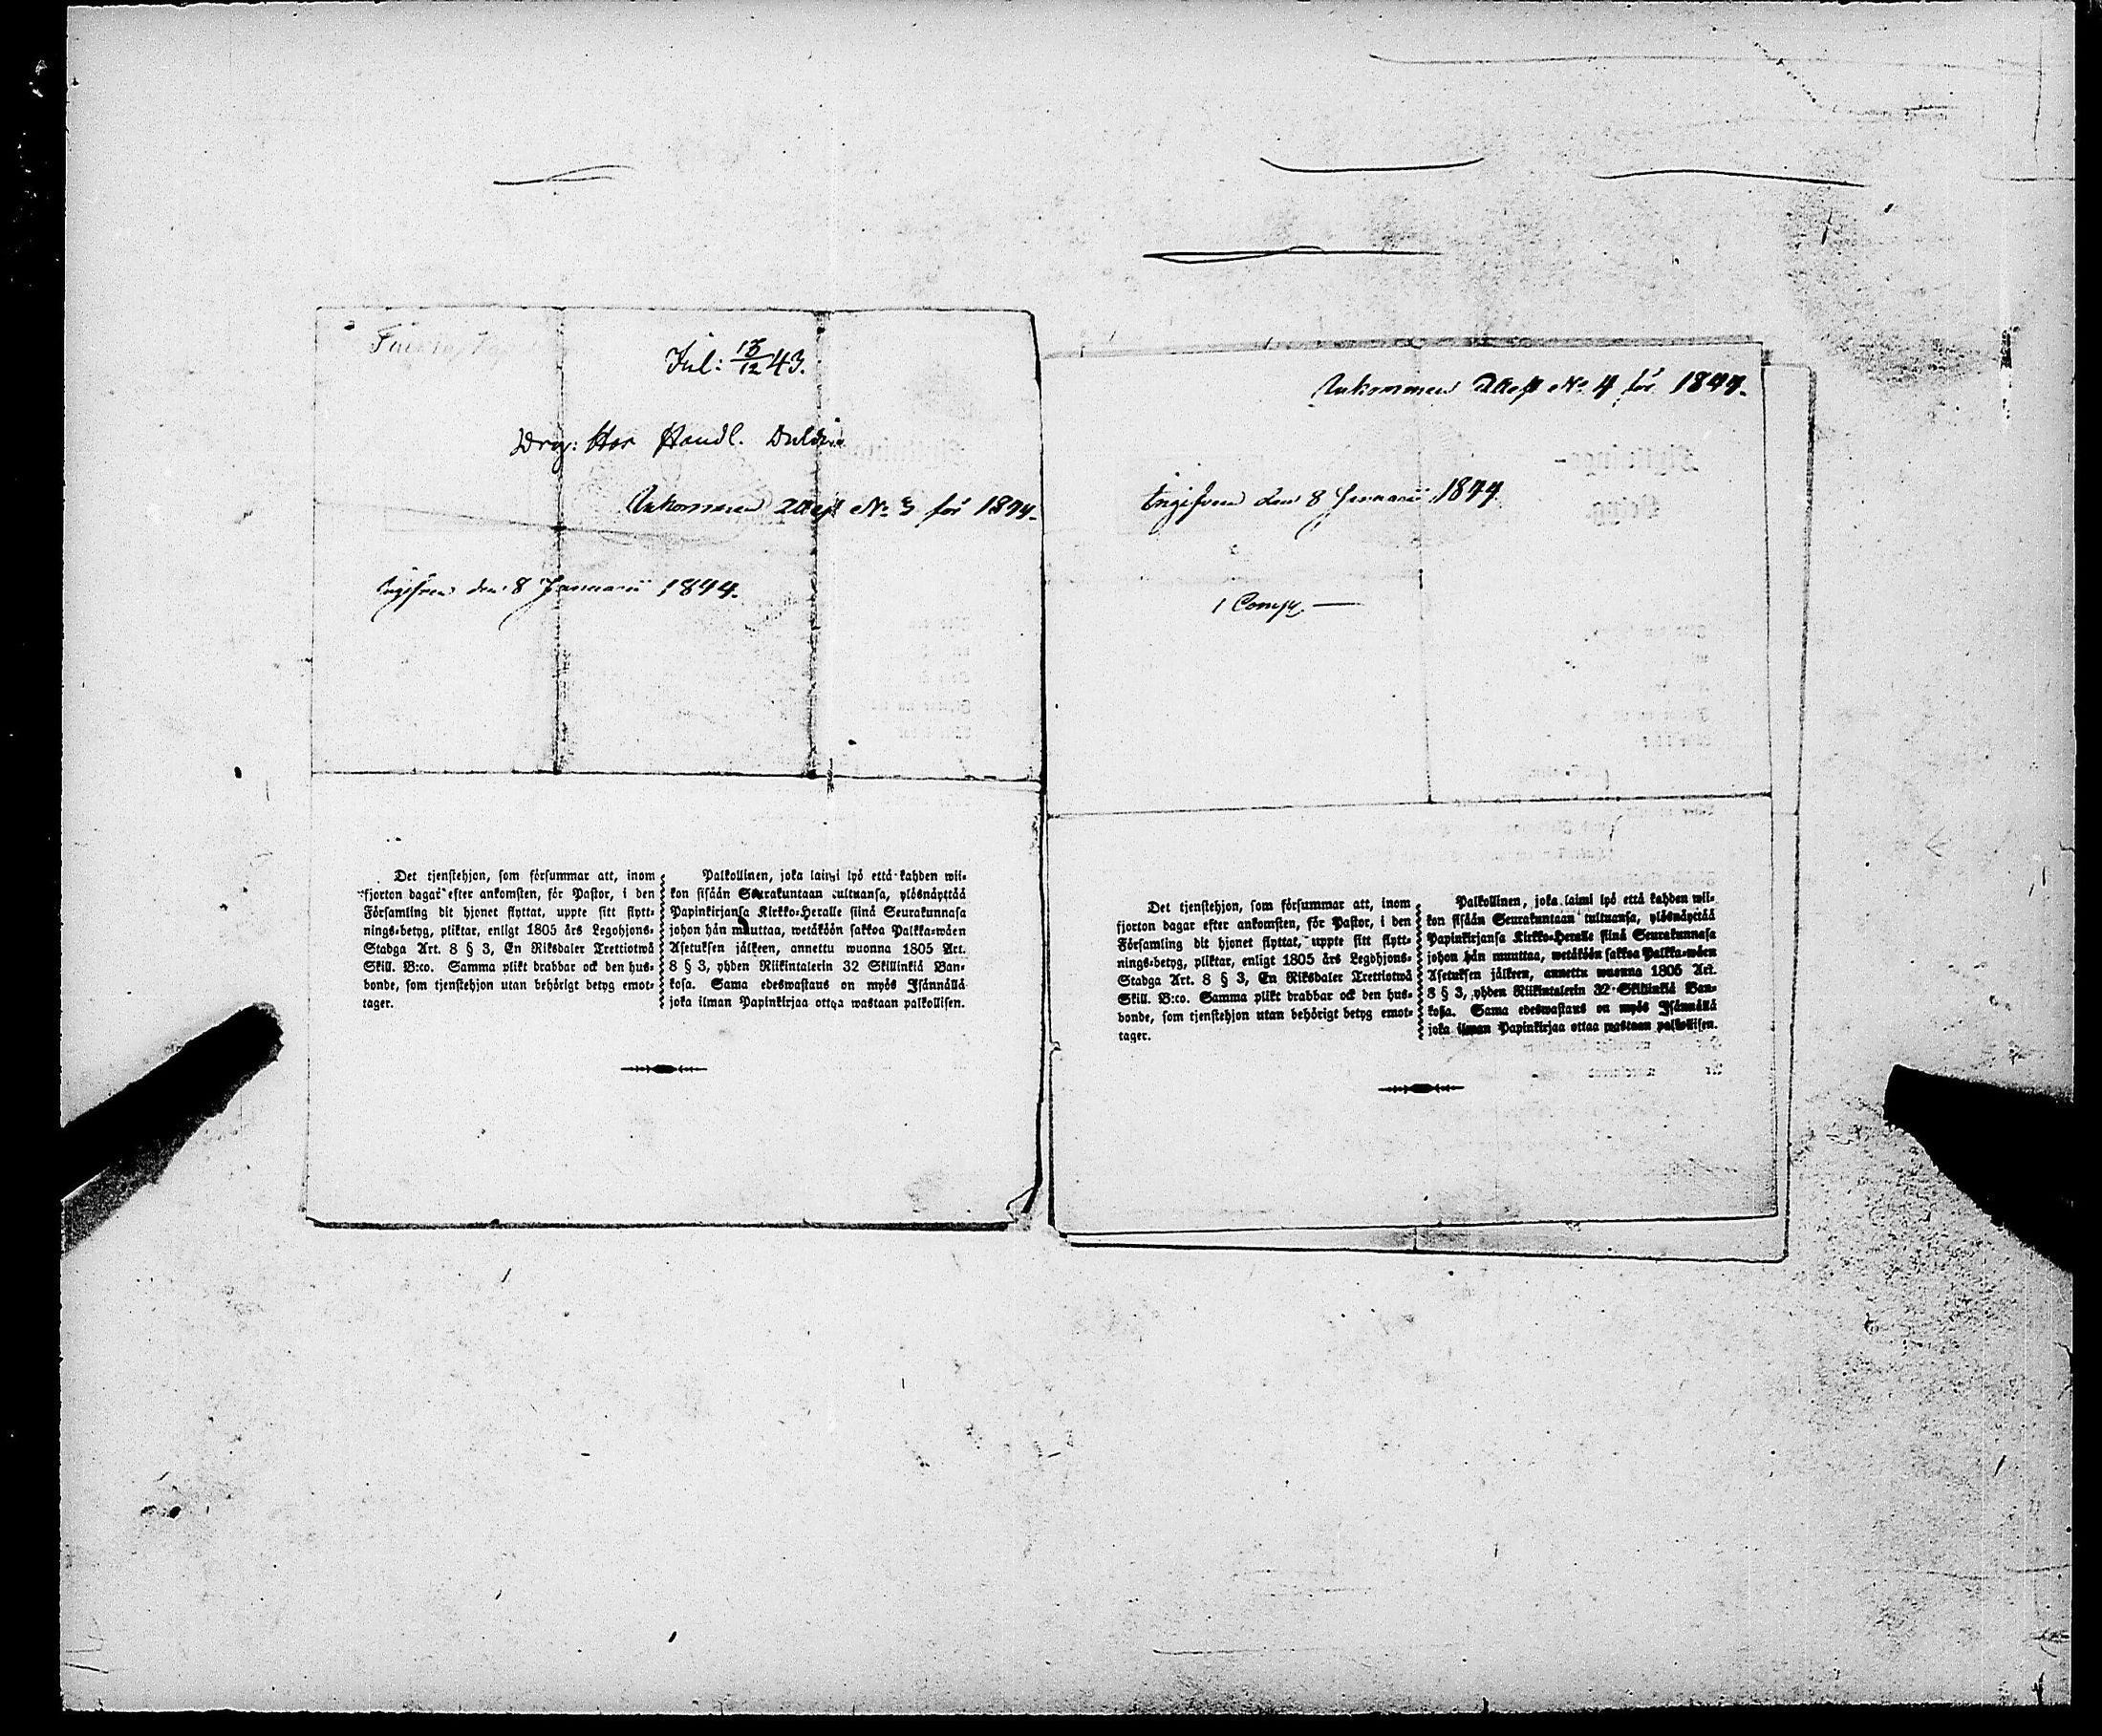 Jul: 13/12 43.
Drg: Hos Handl.
Ankommen Attest No 3 för 1844.
Ingifven den 8 Januarii 1844.
Det tjenstehjon, som försummar att, inom
fjorton dagar efter ankomsten, för Pastor, i den
Församling dit hjonet flyttat, uppte sitt flytt-
nings-betyg, pliktar, enligt 1805 års Legohjons-
Stadga Art. 8 § 3, En Riksdaler Trettiotwå
Skill. B:co. Samma plikt drabbar ock den hus-
bonde, som tjenstehjon utan behörigt betyg emot-
tager.
Palkollinen, joka laimi lyö että kahden wii-
kon sisään Seurakuntaan tultuansa, ylösnäyttää
Papinkirjansa Kirkko-Heralle siinä Seurakunnasa
johon hän muuttaa, wetäköön sakkoa Palkka-wäen
Asetuksen jälkeen, annettu wuonna 1805 Art.
8 § 3, yhden Riikintalerin 32 Skillinkiä Ban-
kosa. Sama edeswastaus on myös Isännällä
joka ilman Papinkirjaa ottaa wastaan palkollisen.
Ankommen Attest No 4 för 1844.
Ingifven den 8 Januarii 1844.
Det tjenstehjon, som försummar att, inom
fjorton dagar efter ankomsten, för Pastor, i den
Församling dit hjonet flyttat, uppte sitt flytt-
nings-betyg, pliktar, enligt 1805 års Legohjons-
Stadga Art. 8 § 3, En Riksdaler Trettiotwå
Skill. B:co. Samma plikt drabbar ock den hus-
bonde, som tjenstehjon utan behörigt betyg emot-
tager.
Palkollinen, joka laimi lyö että kahden wii-
kon sisään Seurakuntaan tultuansa, ylösnäyttää
Papinkirjansa Kirkko-Heralle siinä Seurakunnasa
johon hän muuttaa, wetäköön sakkoa Palkka-wäen
Asetuksen jälkeen, annettu wuonna 1805 Art.
8 § 3, yhden Riikintalerin 32 Skillinkiä Ban-
kosa. Sama edeswastaus on myös Isännällä
joka ilman Papinkirjaa ottaa wastaan palkollisen.